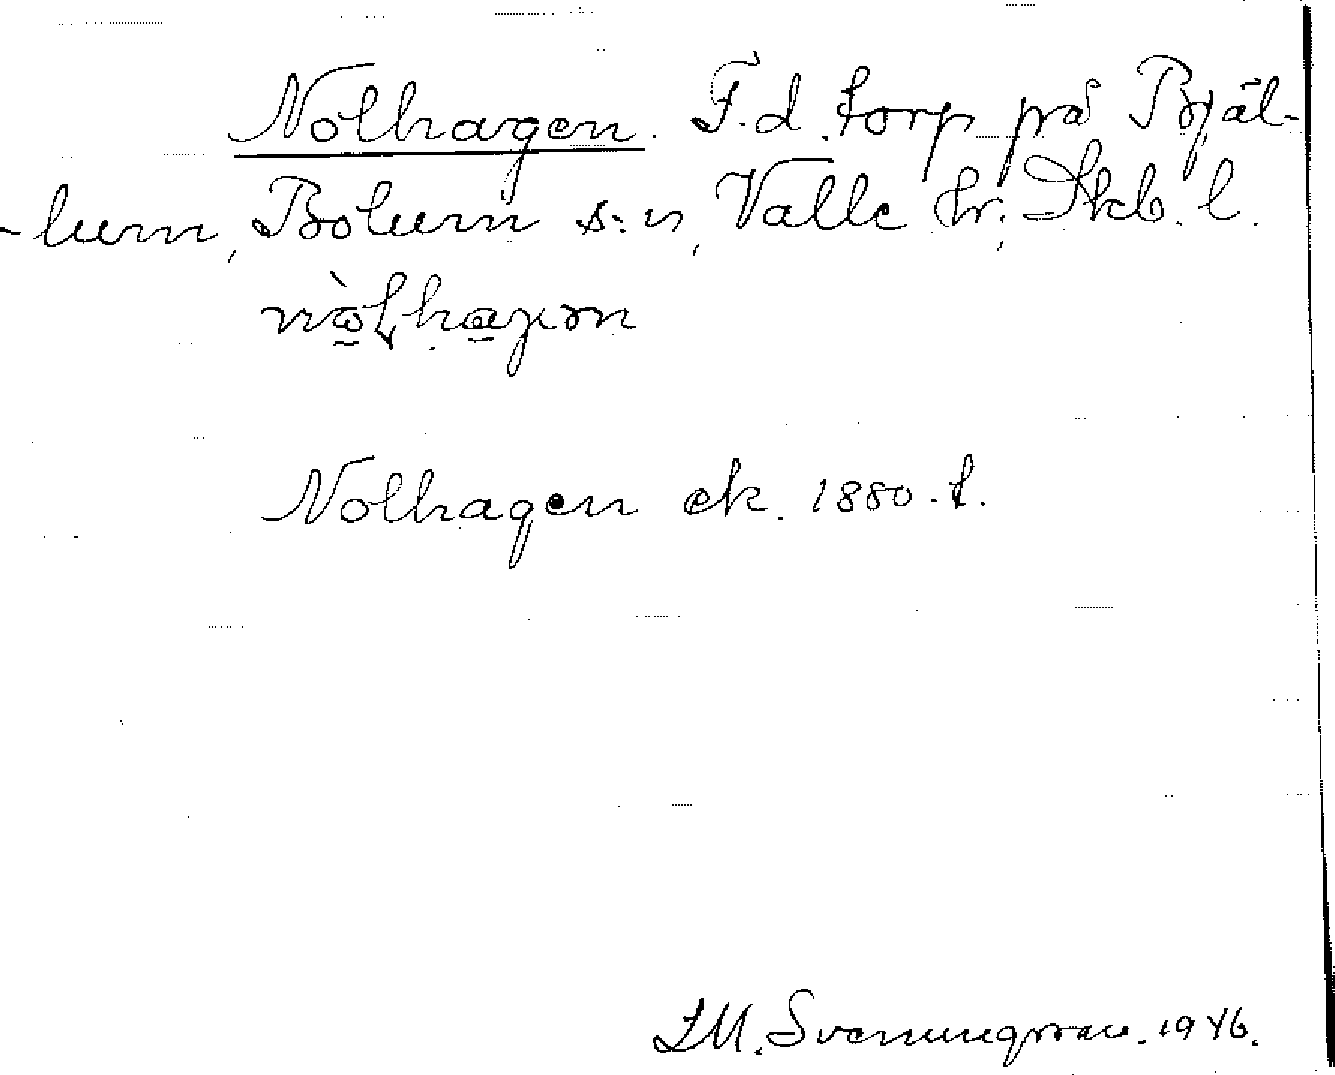 Nolhagen. F.d. torp på Bjäl-
-lum, Bolum s:n, Valle hr; Skb. l.
Nolhagen ek. 1880-t.
I.M. Svenungsson. 1946.